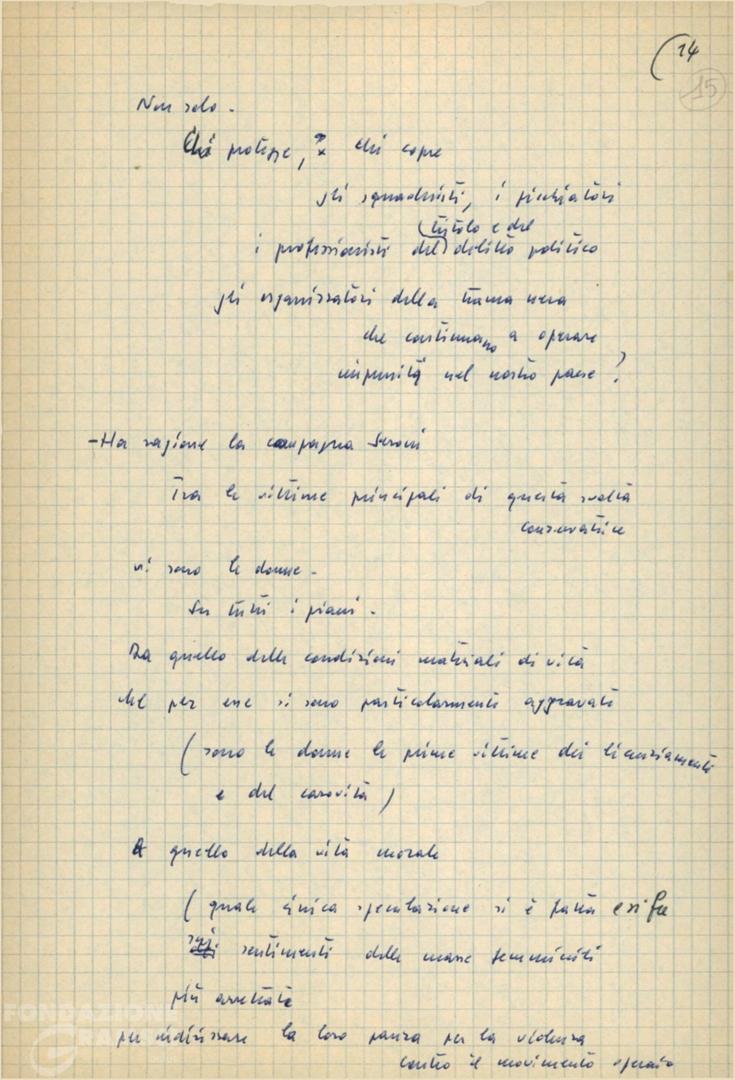 (14
15
Non solo -
Chi protegge, e chi copre
gli squadristi, i picchiatori
(titolo e del
i professionisti del) delitto politico
gli organizzatori della trama nera
che continuano a operare
impuniti nel nostro paese?
- Ha ragione la compagna Seroni
Tra le vittime principali di questa svolta
conservatrice
vi sono le donne -
Su tutti i piani -
Da quello delle condizioni materiali di vita
che per esse si sono particolarmente aggravate
(sono le donne le prime vittime dei licenziamenti
e del carovita)
A quello della vita morale
(quale cinica speculazione si è fatta e si fa
sui sentimenti delle masse femminili
più arretrate
per indirizzare la loro paura per la violenza
contro il movimento operaio
FONDAZIONE
GRAMSCI